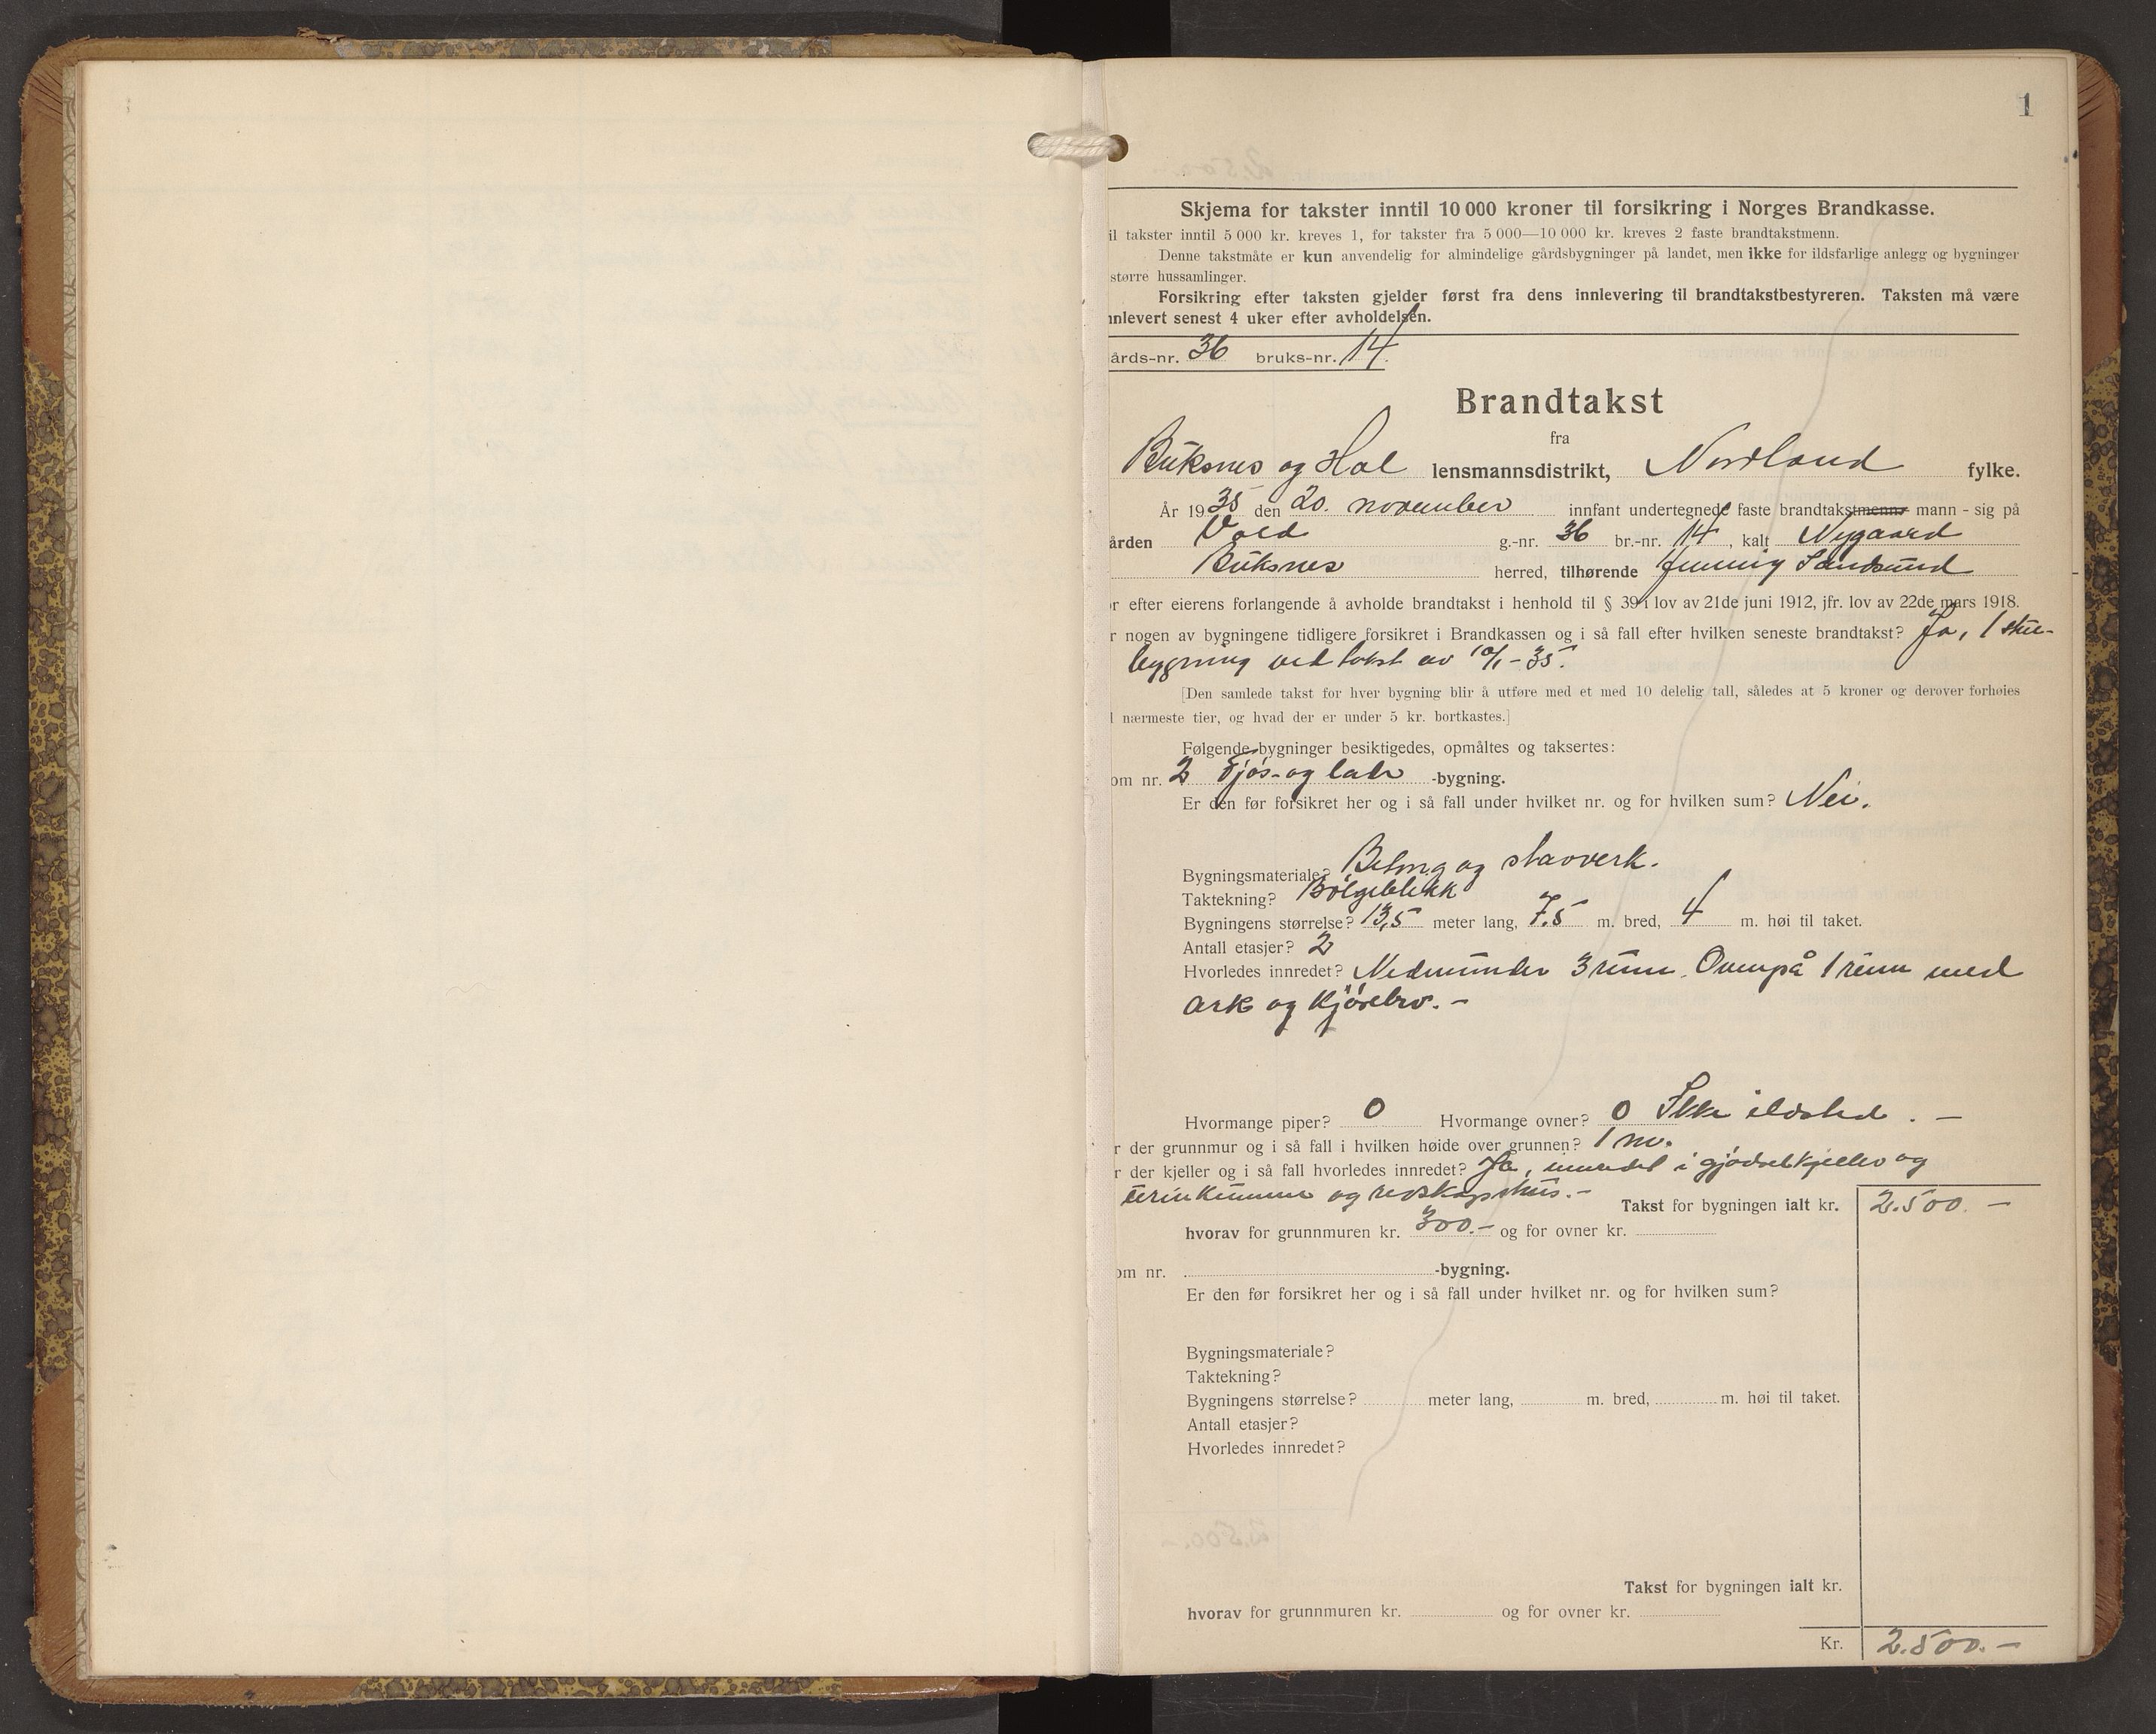 1
Skjema for takster inntil 10 000 kroner til forsikring i Norges Brandkasse.
il takster inntil 5 000 kr. kreves 1, for takster fra 5 000—10 000 kr. kreves 2 faste brandtakstmenn.
Denne takstmåte er kun anvendelig for almindelige gårdsbygninger på landet, men ikke for ildsfarlige anlegg og bygninger
større hussamlinger.
Forsikring efter taksten gjelder først fra dens innlevering til brandtakstbestyreren. Taksten må være
nnlevert senest 4 uker efter avholdelsen.
årds-nr. 36 bruks-nr. 14.
Brandtakst
fra
Buksnes og Hol lensmannsdistrikt, Nordland fylke.
År 1935 den 20. november innfant undertegnede faste brandtakstmenn mann - sig på
ården Vold g.-nr. 36 br.-nr. 14, kalt Nygaard
Buksnes herred, tilhørende Sandsund
r efter eierens forlangende å avholde brandtakst i henhold til § 39 i lov av 21de juni 1912, jfr. lov av 22de mars 1918.
r nogen av bygningene tidligere forsikret i Brandkassen og i så fall efter hvilken seneste brandtakst? Ja, 1 stue-
bygning ved takst av 10/1-35.
[Den samlede takst for hver bygning blir å utføre med et med 10 delelig tall, således at 5 kroner og derover forhøies
l nærmeste tier, og hvad der er under 5 kr. bortkastes.]
Følgende bygninger besiktigedes, opmåltes og taksertes:
om nr. 2 Fjøs- og lade -bygning.
Er den før forsikret her og i så fall under hvilket nr. og for hvilken sum? Nei.
Bygningsmateriale? Betong og stavverk.
Taktekning? Bølgeblikk
Bygningens størrelse? 13,5 meter lang, 7.5 m. bred, 4 m. høi til taket.
Antall etasjer? 2
Hvorledes innredet? Nedenunder 3 rum. Ovenpå 1 rum med
ark og kjørebro. -
Hvormange piper? 0 Hvormange ovner? 0 Ikke ildsted. -
r der grunnmur og i så fall i hvilken høide over grunnen? 1 m.
r der kjeller og i så fall hvorledes innredet? Ja, innredet i gjødselkjeller og
urinkumme og redskapshus. -
Takst for bygningen ialt kr. 2.500. -
hvorav for grunnmuren kr. 300.- og for ovner kr.
om nr. -bygning.
Er den før forsikret her og i så fall under hvilket nr. og for hvilken sum?
Bygningsmateriale?
Taktekning?
Bygningens størrelse? meter lang, m. bred, m. høi til taket.
Antall etasjer?
Hvorledes innredet?
Takst for bygningen ialt kr.
hvorav for grunnmuren kr. og for ovner kr.
Kr. 2.500.-